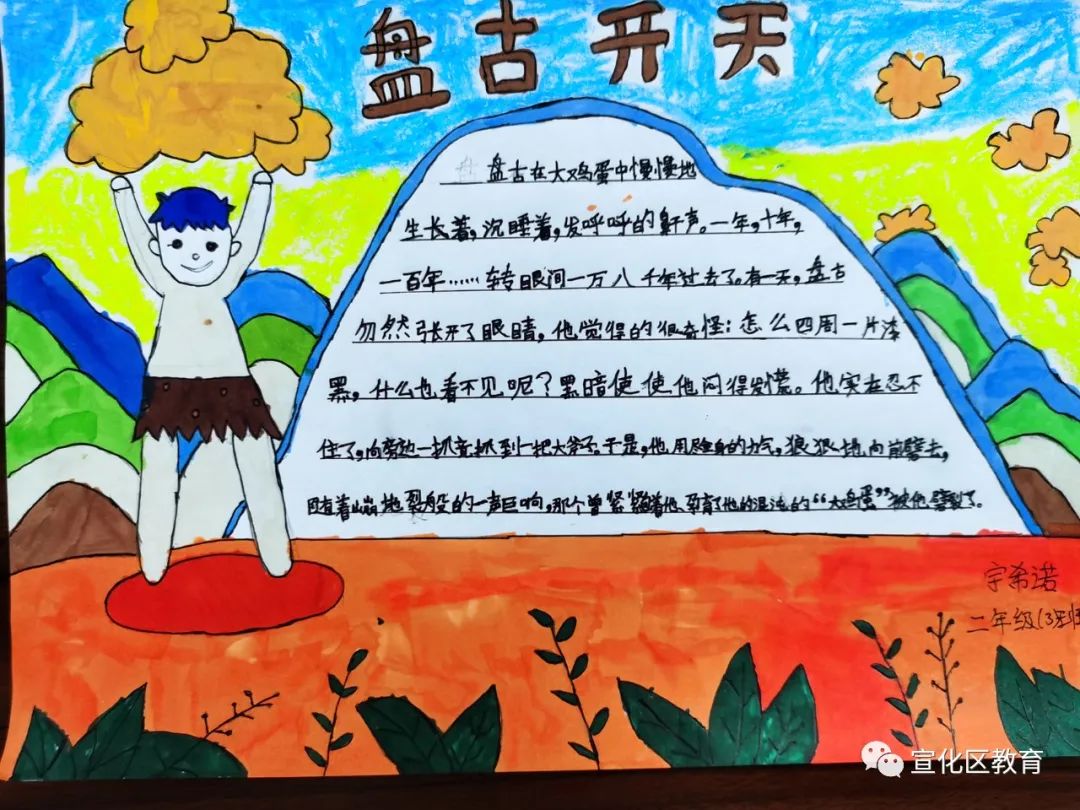 盘古开天
盘古在大鸡蛋中慢慢地
生长着,沉睡着,发呼呼的鼾声。一年,十年,
一百年……转眼间一万八千年过去了。有一天,盘古
忽然张开了眼睛,他觉得的很奇怪:怎么四周一片漆
黑,什么也看不见呢?黑暗使使他闷得发慌。他实在忍不
住了,向旁边一抓竟抓到一把大斧子。于是,他用尽全身的力气,狠狠地向前劈去,
随着山崩地裂般的一声巨响,那个曾紧紧着他、孕育了他的混沌的“大鸡蛋”被他劈裂了。
宇希诺
二年级(3)班
宣化区教育